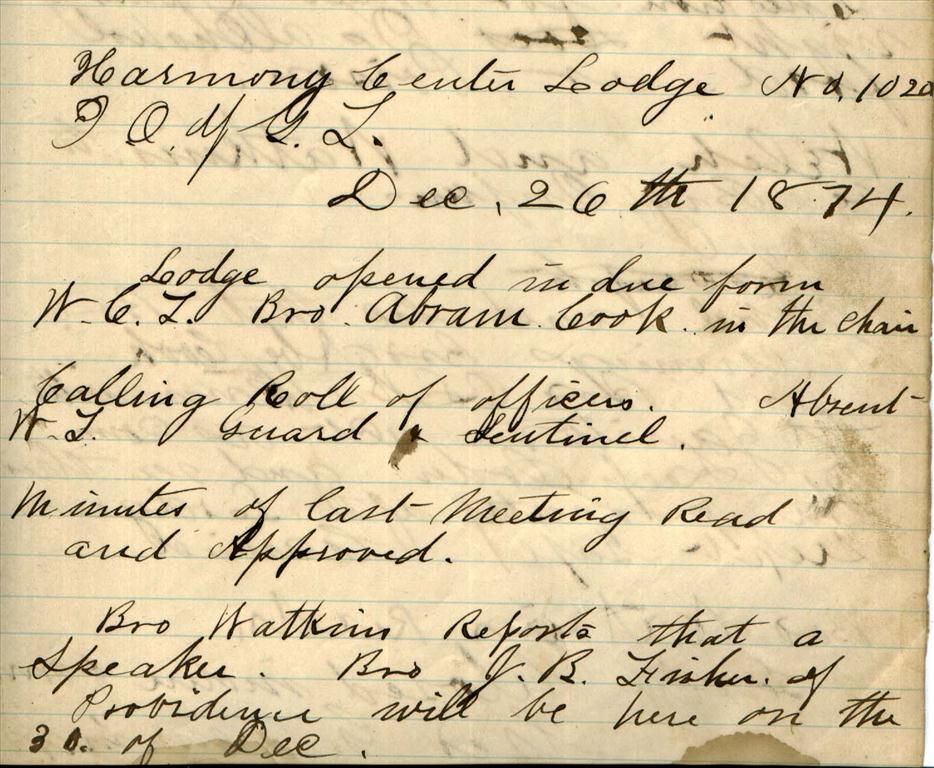 Harmony Center Lodge No, 1020
I O of G. T.
Dec, 26 th 1874.
Lodge opened in due form
W. C. T. Bro. Abram Cook in the Chair
Calling Roll of officers. Absent
W. T. Guard & Sentinel.
Minutes of last Meeting Read
and Approved.
Bro Watkins Reports that a
Speaker. Bro J. B. Fisher. of
Providence will be here on the
30. of Dec.